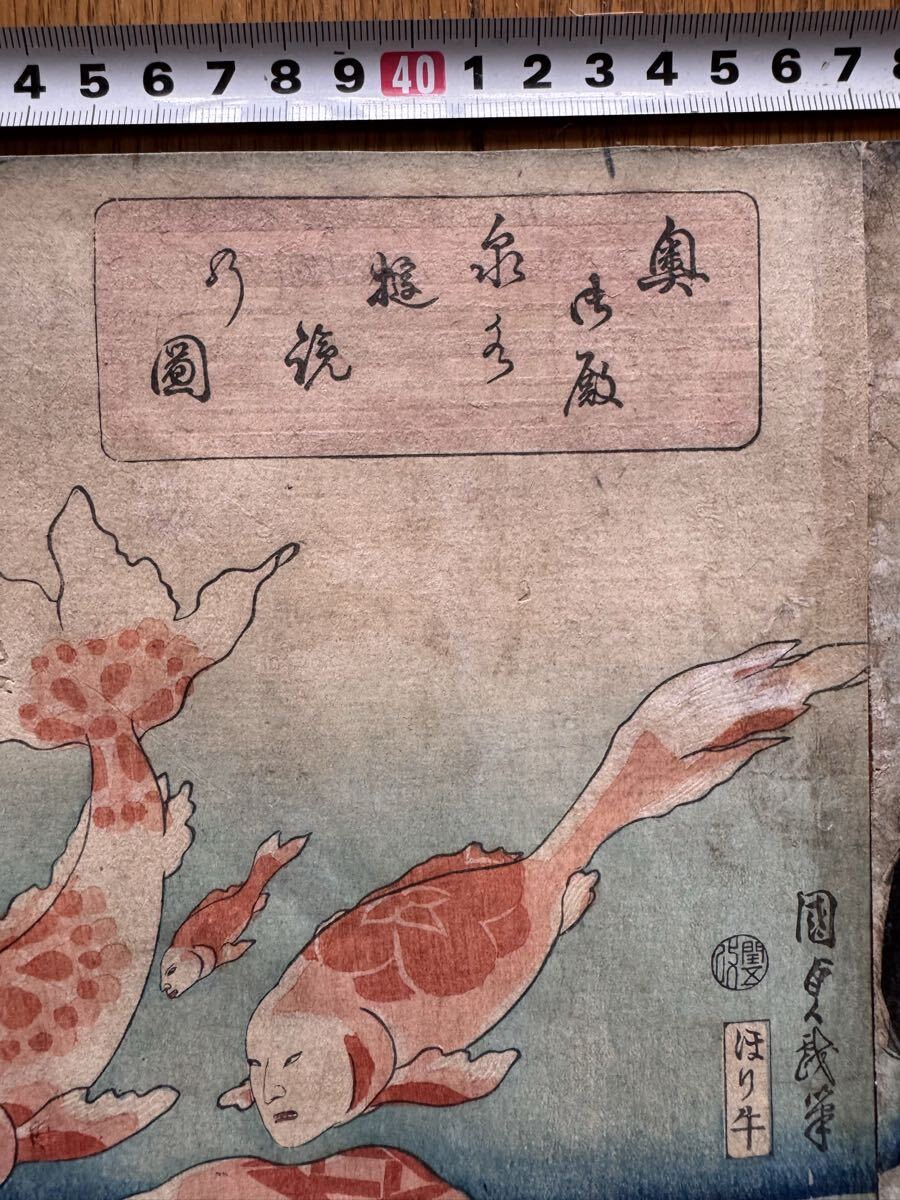 4 5 6 7 8 9 40 1 2 3 4 5 6 7 8
奥
御殿
泉水
の圖
國貞戯筆
改 閏五
ほり牛